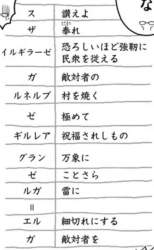 な
ス 讃えよ
ザ 奉れ
イルギラーゼ 恐ろしいほど強靭に民衆を従える
ガ 敵対者の
ルネルブ 村を焼く
ゼ 極めて
ギルレア 祝福されしもの
グラン 万象に
ゼ ことさら
ルガ 雷に
=
エル 細切れにする
ガ 敵対者を